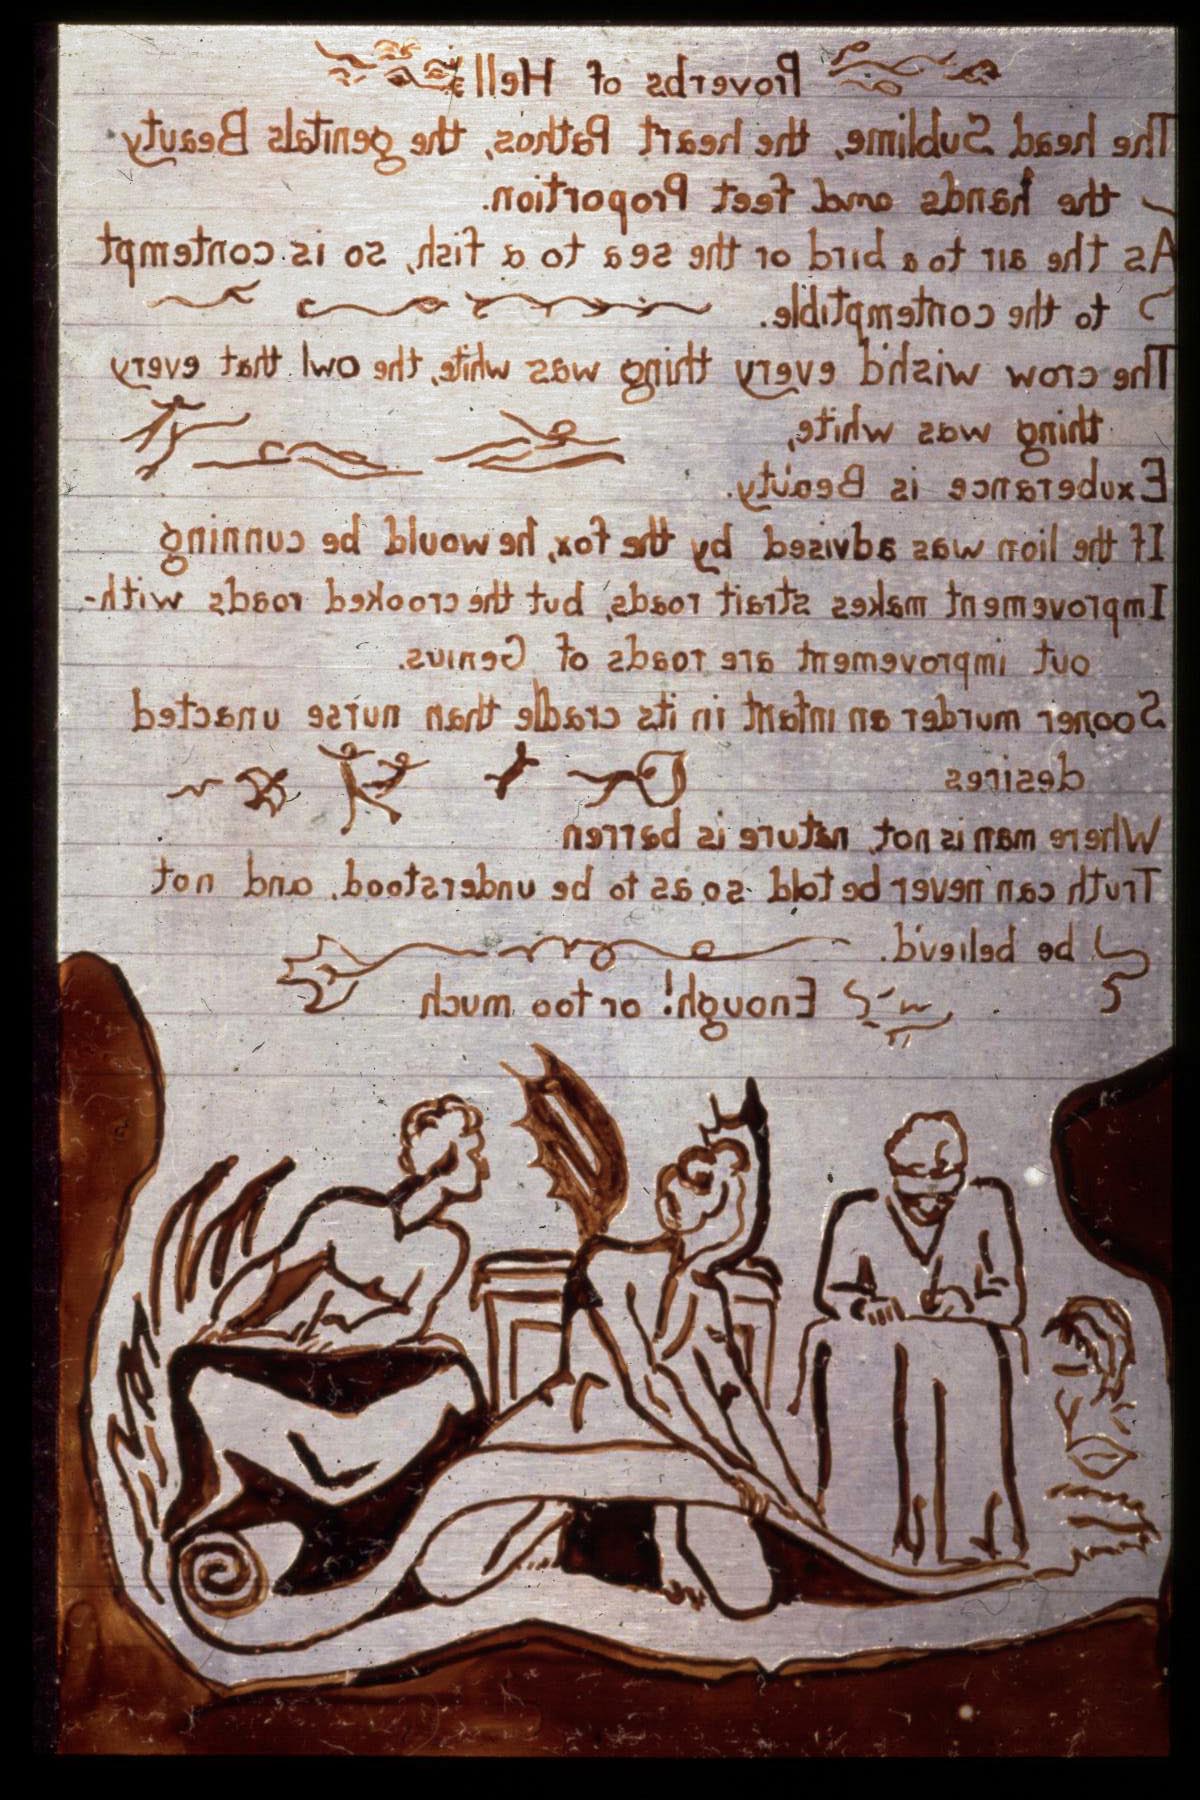 Proverbs of Hell
The head Sublime, the heart Pathos, the genitals Beauty
the hands and feet Proportion.
As the air to a bird or the sea to a fish, so is contempt
to the contemptible.
The crow wish'd every thing was white, the owl that every
thing was white,
Exuberance is Beauty.
If the lion was advised by the fox, he would be cunning
Improvement makes strait roads, but the crooked roads with-
out improvement are roads of Genius.
Sooner murder an infant in its cradle than nurse unacted
desires
Where man is not, nature is barren
Truth can never be told so as to be understood, and not
be believ'd.
Enough! or too much